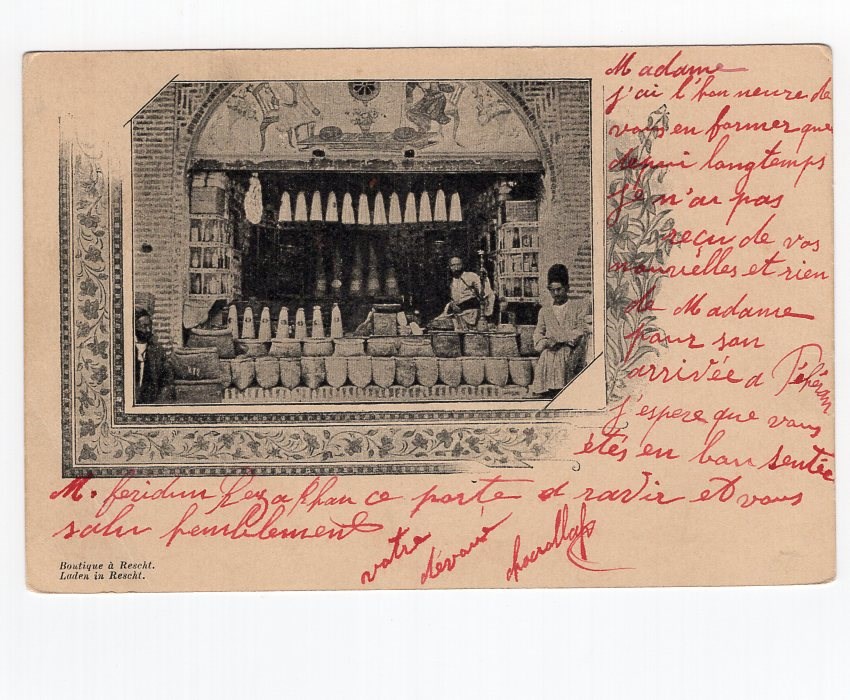 Madame
j'ai l'bonneure de
vous en former que
depui longtemps
je n'ai pas
reçu de vos
nouvielles et rien
de Madame
pour son
arrivée a Téhéran
j'espere que vous
étés en bon sentée
M. feridun Reza Khan ce porte a ravir et vous
salu hemblement
votre dévoué
Boutique à Rescht.
Laden in Rescht.